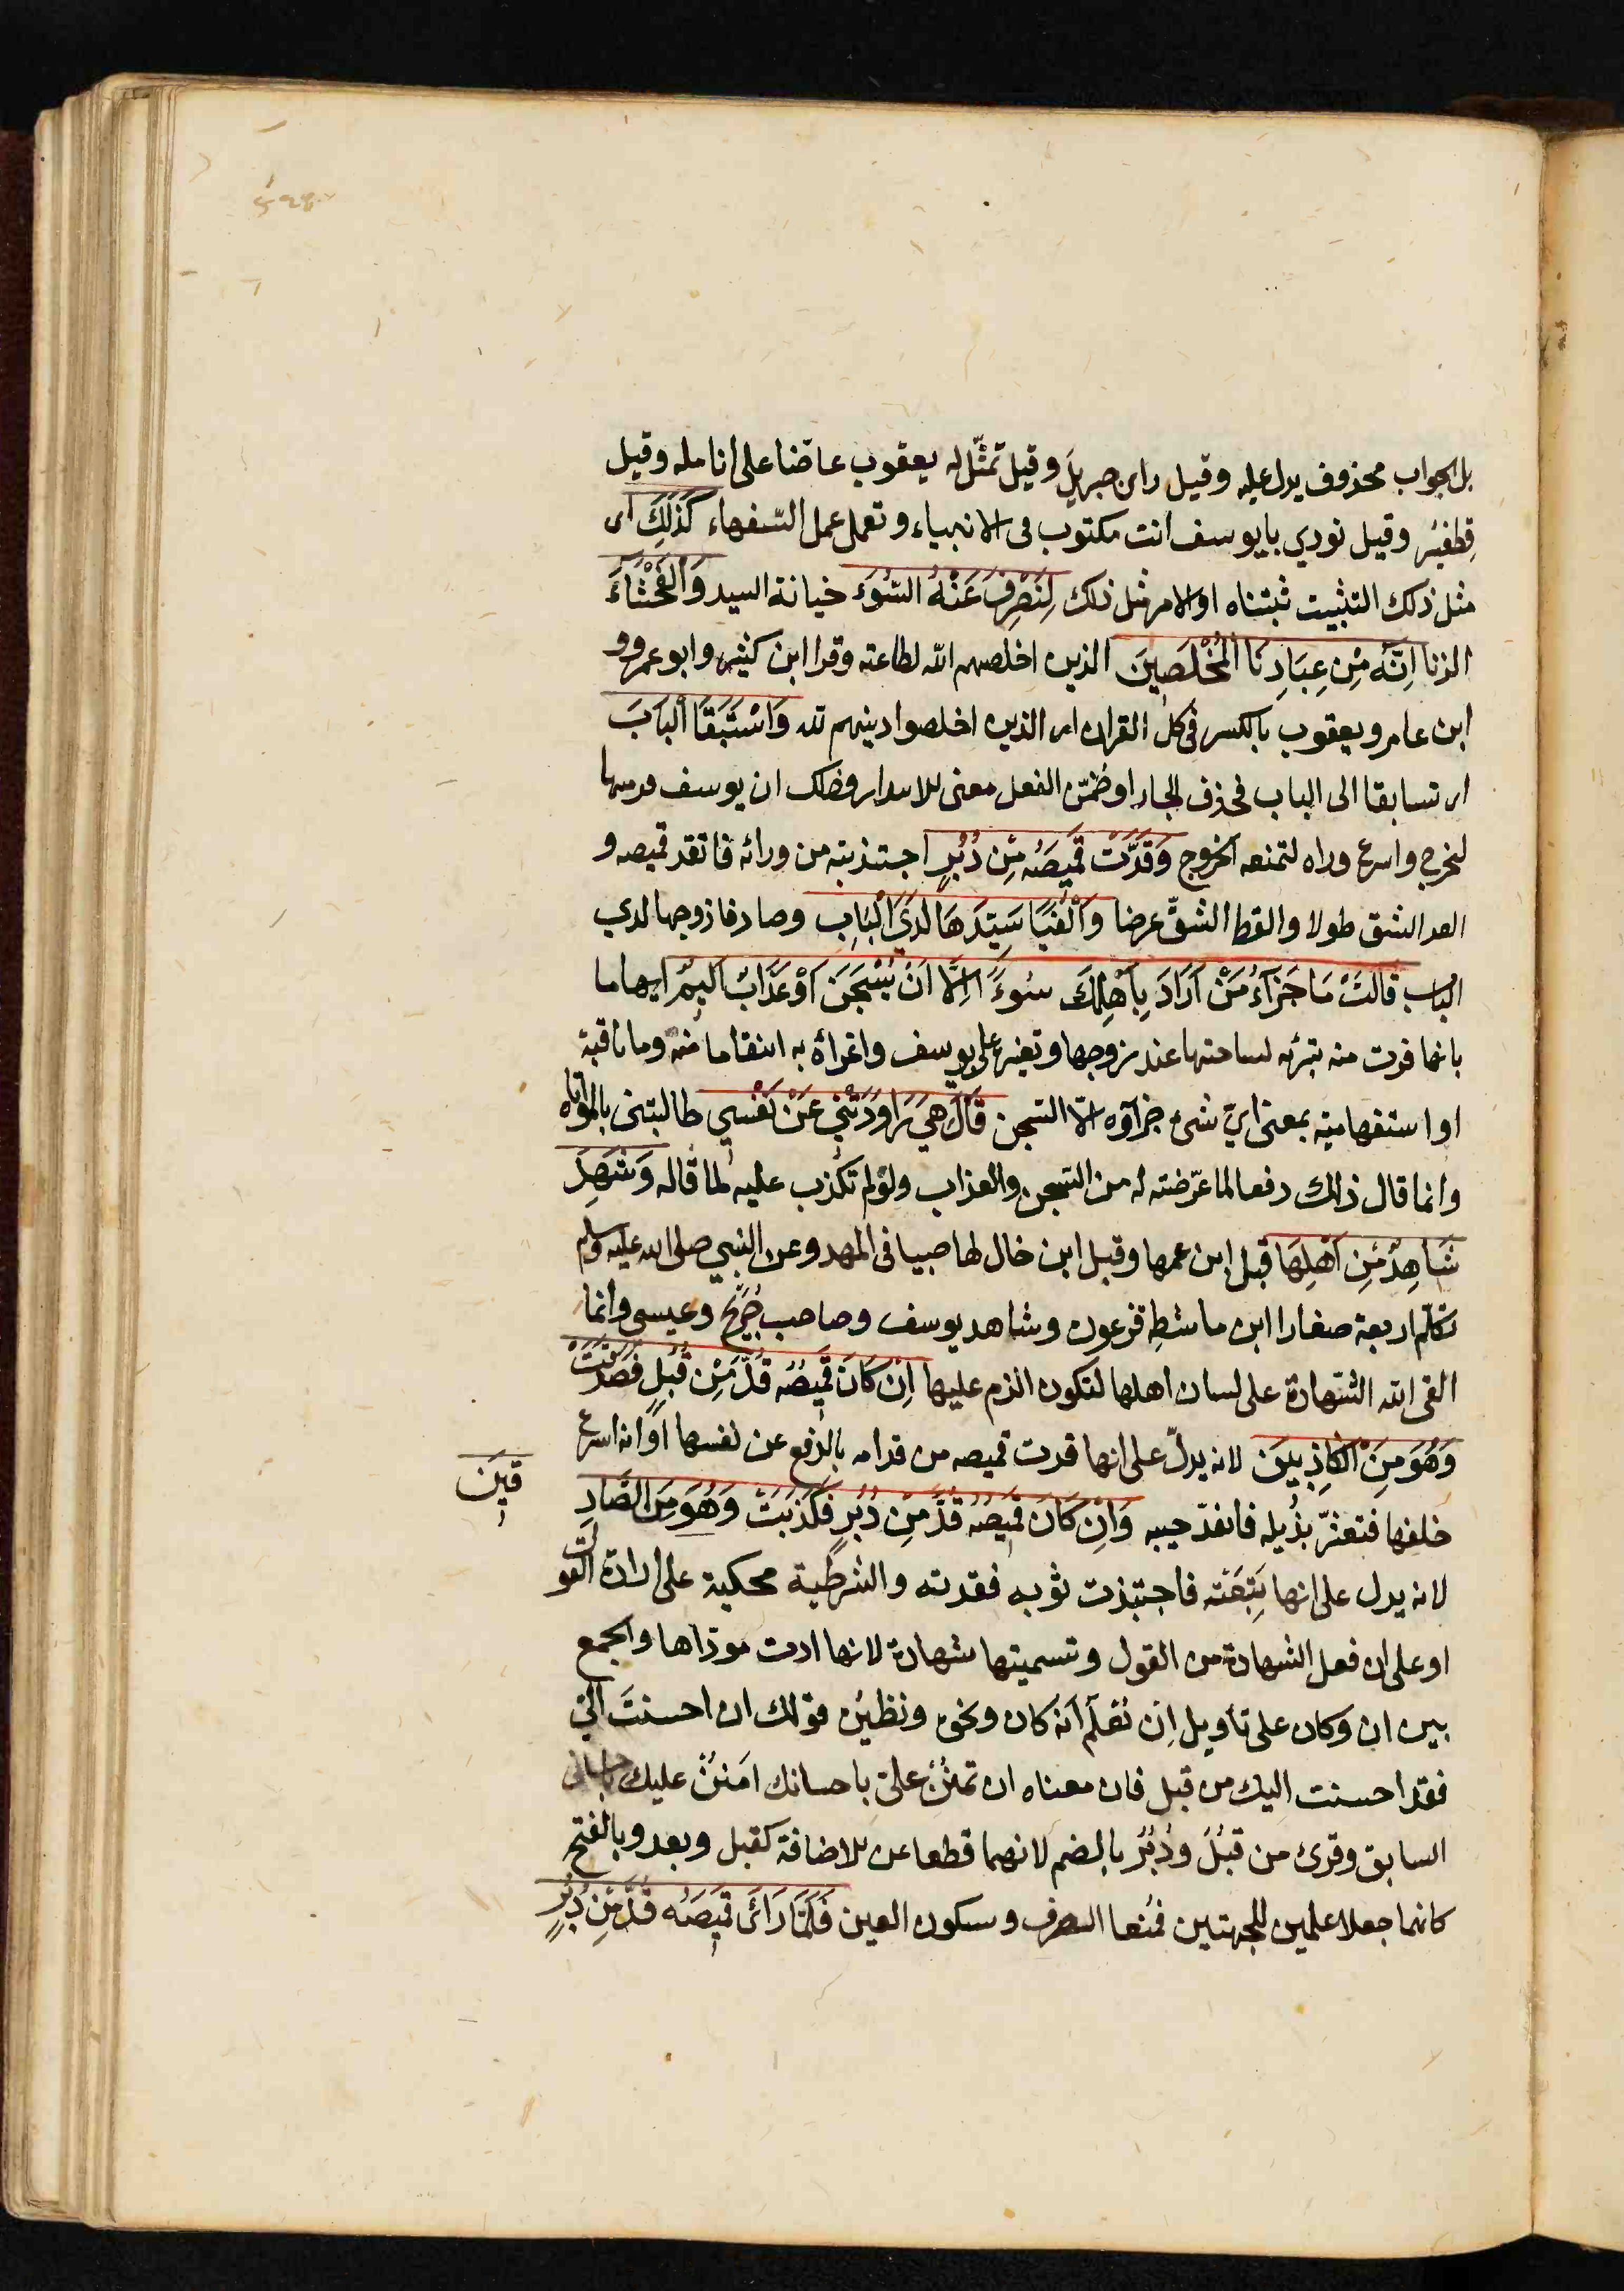 بل الجواب محذوف يدل عليه وقيل راى جبريل وقيل تمثّل له يعقوب عاضّا على انامله وقيل
قِطفِيْر وقيل نودي يايوسف انت مكتوب فى الانبياء وتعمل عمل السّفهاء كَذَلِكَ اى
مثل ذلك التثبيت ثبتناه او الامر مثل ذلك لِنَصْرِفَ عَنْهُ السُّوَءَ خيانة السيد وَالْفَحْشَاءَ
الزنا اِنَّهُ مِنْ عِبَادِنَا الْمُخْلَصِينَ الذين اخلصهم الله لطاعته وقرا ابن كثير وابو عمرو و
ابن عامر ويعقوب بالكسر فى كل القران اى الذين اخلصوا دينهم لله وَاسْتَبَقَا الْبَابَ
اى تسابقا الى الباب فحذف الجار او ضمّن الفعل معنى الابتدار وذلك ان يوسف فر منها
ليخرج واسرع وراه لتمنعه الخروج وَقَدَّتْ قَمِيصَهُ مِنْ دُبُرٍ اجتذبته من ورائه فانقد قميصه و
القد الشق طولا والقط الشقّ عرضا وَاَلْفَيَا سَيِّدَهَا لَدَى الْبَابِ وصادفا زوجها لدي
الباب قَالَتْ مَا جَزَآءُ مَنْ اَرَادَ بِاَهْلِكَ سُوءً اِلَّا اَنْ يُسْجَنَ اَوْ عَذَابٌ اَلِيمٌ ايهاما
بانها فرت منه تبرئه لساحتها عند زوجها وتغيره على يوسف واغراءه به انتقاما منه وما نافية
او استفهامية بمعنى ايّ شىء جزآؤه الّا السّجن قَالَ هِيَ رَاوَدَتْنِي عَنْ نَفْسِي طالبتنى بالمواتاه
وانما قال ذلك دفعا لما عرّضته له من السّجن والعذاب ولو لم تكذب عليه لما قاله وَشَهِدَ
شَاهِدٌ مِنْ اَهْلِهَا قيل ابن عمها وقيل ابن خال لها صبيا فى المهد وعن النبي صلى الله عليه وسلم
تكلم اربعة صغارا ابن ماشطة فرعون وشاهد يوسف وصاحب جُرَيْج وعيسى وانما
القى الله الشّهادة على لسان اهلها لتكون الزم عليها اِنْ كَانَ قَمِيصُهُ قُدَّ مِنْ قُبُلٍ فَصَدَقَتْ
وَهُوَ مِنَ الْكَاذِبِينَ لانه يدلّ على انها قدت قميصه من قدامه بالدفع عن نفسها او انه اسرع
خلفها فتعثّر بذيله فانقدّ جيبه وَاِنْ كَانَ قَمِيصُهُ قُدَّ مِنْ دُبُرٍ فَكَذَبَتْ وَهُوَ مِنَ الصَّادِ
قِينَ
لانه يدل على انها تَبِعَتْه فاجتبذت ثوبه فقدته والشرطية محكية على ارادة القول
او على ان فعل الشهادة من القول وتسميتها شهادة لانها ادت موداها والجمع
بين ان وكان على تأويل اِن نُعْلَم اَنه كان ونحوه ونظيره قولك ان احسنتَ الىّ
فقد احسنت اليك من قبل فان معناه ان تمنُنْ علىّ باحسانك اَمنُنْ عليك
السابق وقرئ من قبُلُ ودُبُرُ بالضم لانهما قطعا عن الاضافة كقبل وبعد وبالفتح
كانهما جعلا علمين للجهتين فمُنعا الصرف وسكون العين فَلَمَّا رَاَى قَمِيصَهُ قُدَّ مِنْ دُبُرٍ